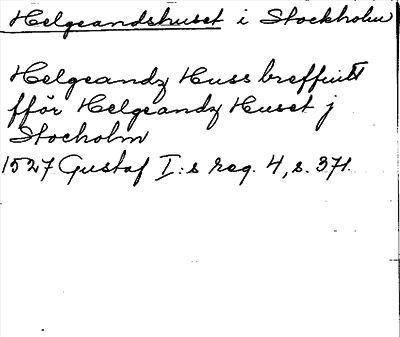 Helgeandshuset i Stockholm
Helgeandz Huss breffuitt
fför Helgeandz Huset j
Stocholm
1527 Gustaf I:s reg. 4, s. 371.